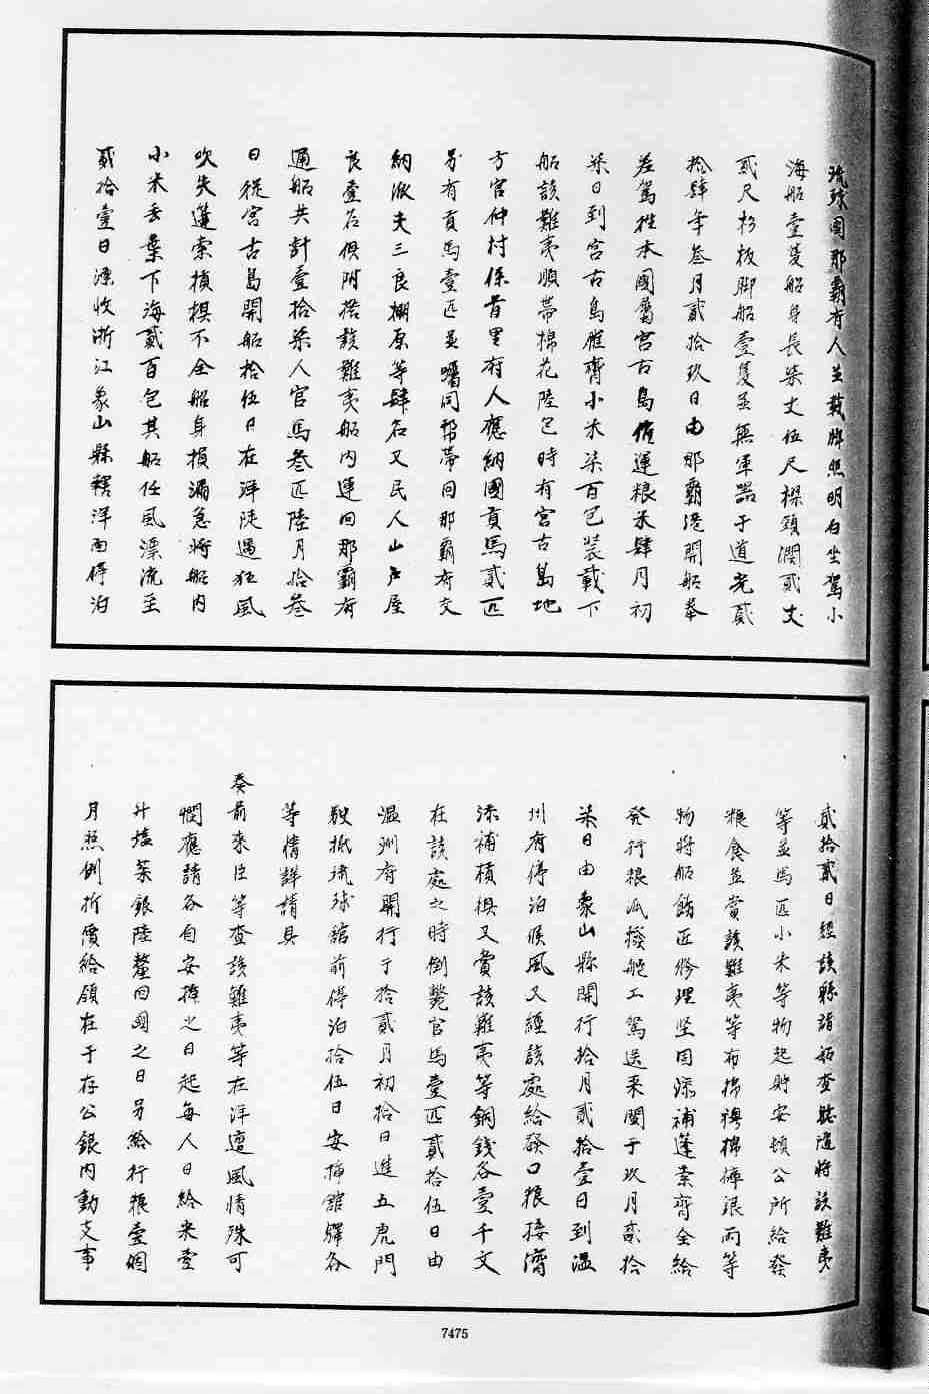 琉球國那霸有人並載牌照明白坐駕小
海船壹隻船身長柒丈伍尺樑頭濶貳丈
貳尺杉板脚船壹隻並無軍器于道光貳
拾肆年叁月貳拾玖日由那霸港開船奉
差駕徃本國屬宮古島催運粮米肆月初
柒日到宮古島催齊小米柒百包装載下
船該難夷順帶棉花陸包時有宮古島地
方官仲村係首里府人應納國貢馬貳匹
另有貢馬壹匹並囑同帮帶回那霸府交
納派夫三良棚原等肆名又民人山戶屋
良壹名俱附搭該難夷船内運回那霸府
通船共計壹拾柒人官馬叁匹陸月拾叁
日從宮古島開船拾伍日在洋陡遇狂風
吹失蓬索槓椇不全船身損漏急將船内
小米丢棄下海貳百包其船任風漂流至
貳拾壹日漂收浙江象山縣釋洋面停泊
貳拾貳日經該縣詣船查驗隨將該難夷
等並馬匹小米等物起貯安頓公所給發
糧食並賞該難夷等布棉襖棉褲銀兩等
物將船飭匠修理堅固添補蓬索齊全給
發行粮派撥舵工駕送來閩于玖月貳拾
柒日由象山縣開行拾月貳拾壹日到溫
州府停泊候風又經該處給發口粮接濟
添補槓椇又賞該難夷等銅錢各壹千文
在該處之時倒斃官馬壹匹貳拾伍日由
溫州府開行于拾貳月初拾日進五虎門
駛抵琉球舘前停泊拾伍日安揷舘驛各
等情詳請具
奏前來臣等查該難夷等在洋遭風情殊可
憫應請各自安揷之日起每人日給米壹
升塩菜銀陸釐回國之日另給行粮壹個
月照例折價給領在于存公銀内動支事
7475